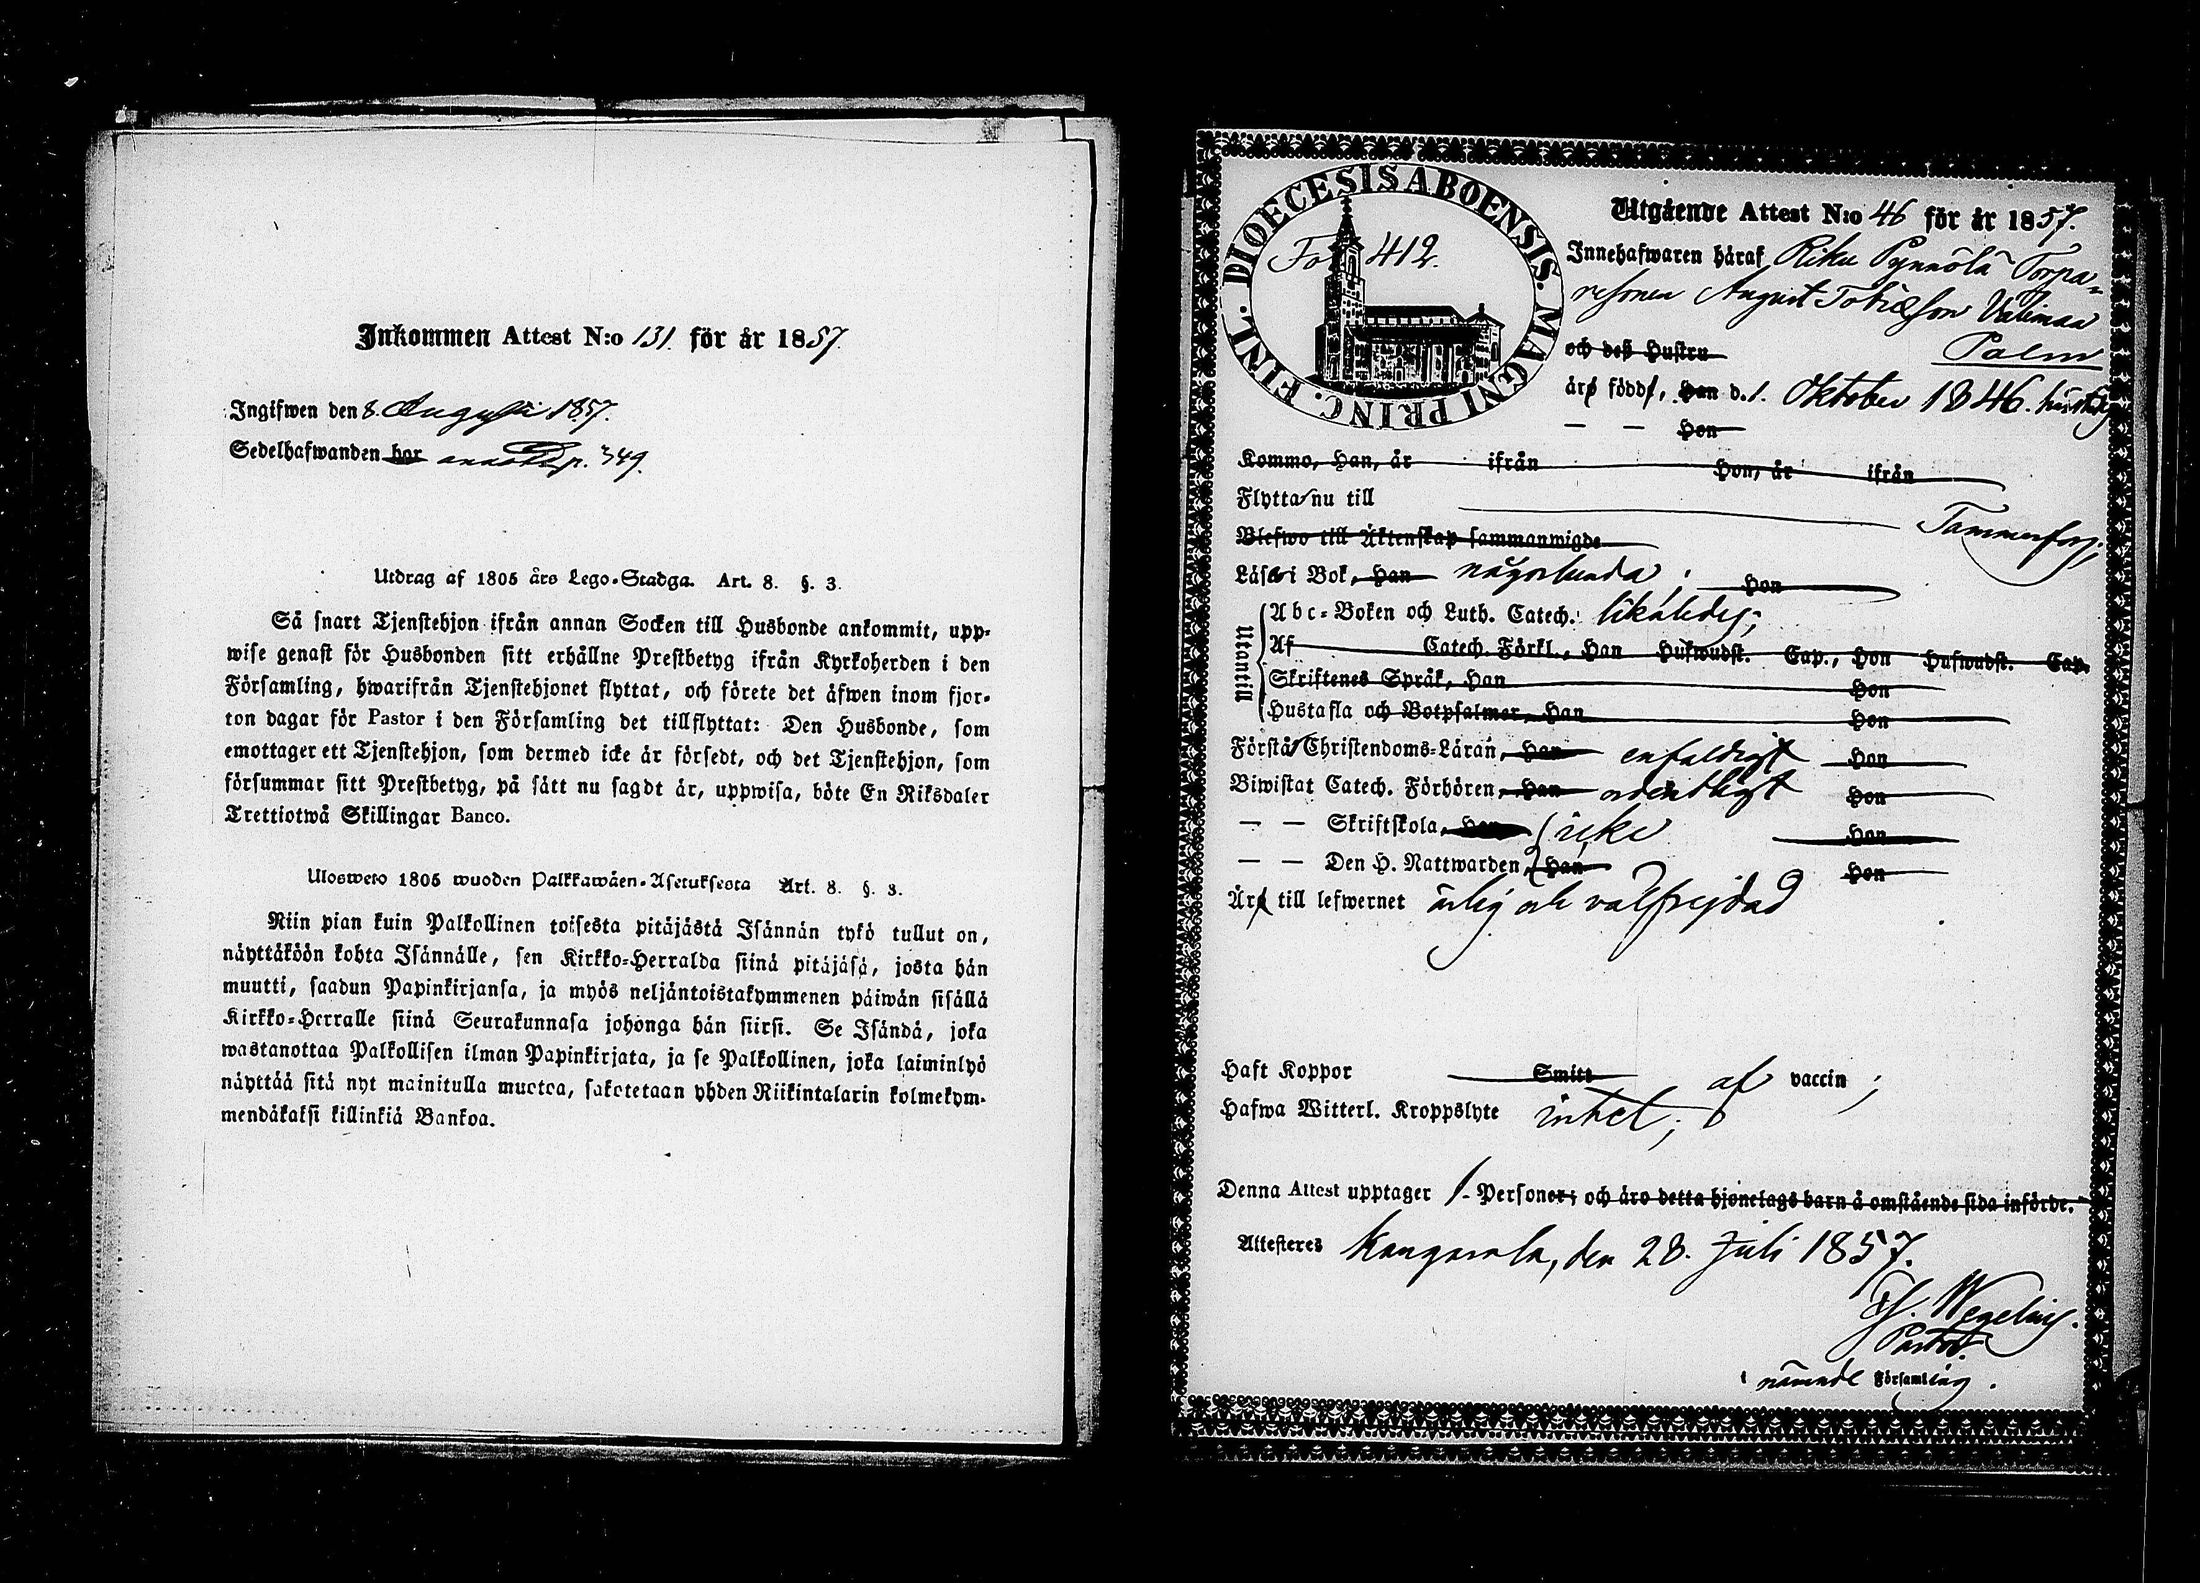 Inkommen Attest N:o 131. för år 1857.
Ingifwen den 8. Augusti 1857.
Sedelhafwanden har annotd p. 349.
Utdrag af 1805 års Lego-Stadga. Art. 8. §. 3.
Så snart Tjenstehjon ifrån annan Socken till Husbonde ankommit, upp-
wise genast för Husbonden sitt erhållne Prestbetyg ifrån Kyrkoherden i den
Församling, hwarifrån Tjenstehjonet flyttat, och förete det äfwen inom fjor-
ton dagar för Pastor i den Församling det tillflyttat: Den Husbonde, som
emottager ett Tjenstehjon, som dermed icke är försedt, och det Tjenstehjon, som
försummar sitt Prestbetyg, på sätt nu sagdt är, uppwisa, böte En Riksdaler
Trettiotwå Skillingar Banco.
Uloswero 1805 wuoden Palkkawäen-Asetuksesta Art. 8. §. 3.
Niin pian kuin Palkollinen toisesta pitäjästä Isännän tykö tullut on,
näyttäköön kohta Isännälle, sen Kirkko-Herralda siinä pitäjäsä, josta hän
muutti, saadun Papinkirjansa, ja myös neljäntoistakymmenen päiwän sisällä
Kirkko-Herralle siinä Seurakunnasa johonga hän siirsi. Se Isändä, joka
wastanottaa Palkollisen ilman Papinkirjata, ja se Palkollinen, joka laiminlyö
näyttää sitä nyt mainitulla muotoa, saketetaan yhden Riikintalarin kolmekym-
mendäkaksi killinkiä Bankoa.
DIOECESIS ABOENSIS. MAGNI PRINC. FINL.
Fol 412.
Utgående Attest N:o 46 för år 1857.
Innehafwaren häraf Riku Pynnölä Torpa-
resonen August Tobiæson Välimaa
och deß Hustru Palm
äro född, han d. 1. Oktober 1846.
— — Hon
Kommo, Han, år ifrån Hon, år ifrån
Flytta nu till Tammerfors;
Blefwo till Äktenskap sammanwigde
Läsa i Bok, Han någorlunda; Hon
Utantill
Abc-Boken och Luth. Catech. likaledes;
Af Catech. Förkl., Han Hufwudst. Cap., Hon Hufwudst. Cap.
Skriftenes Språk, Han Hon
Hustafla och Botpsalmer, Han Hon
Förstå Christendoms-Läran, Han enfaldigt Hon
Biwistat Catech. Förhören, Han ordentligt Hon
— — Skriftskola, Han icke Hon
— — Den H. Nattwarden, Han Hon
Är till lefwernet ärlig och välfrejdad
Haft Koppor Smitt af vaccin;
Hafwa Witterl. Kroppslyte intet;
Denna Attest upptager 1- Personer; och äro detta hjonelags barn å omstående sida införde.
Attesteres Kangasala, den 28. Juli 1857.
H. Wegelius.
Pastor.
i nämnde Församling.